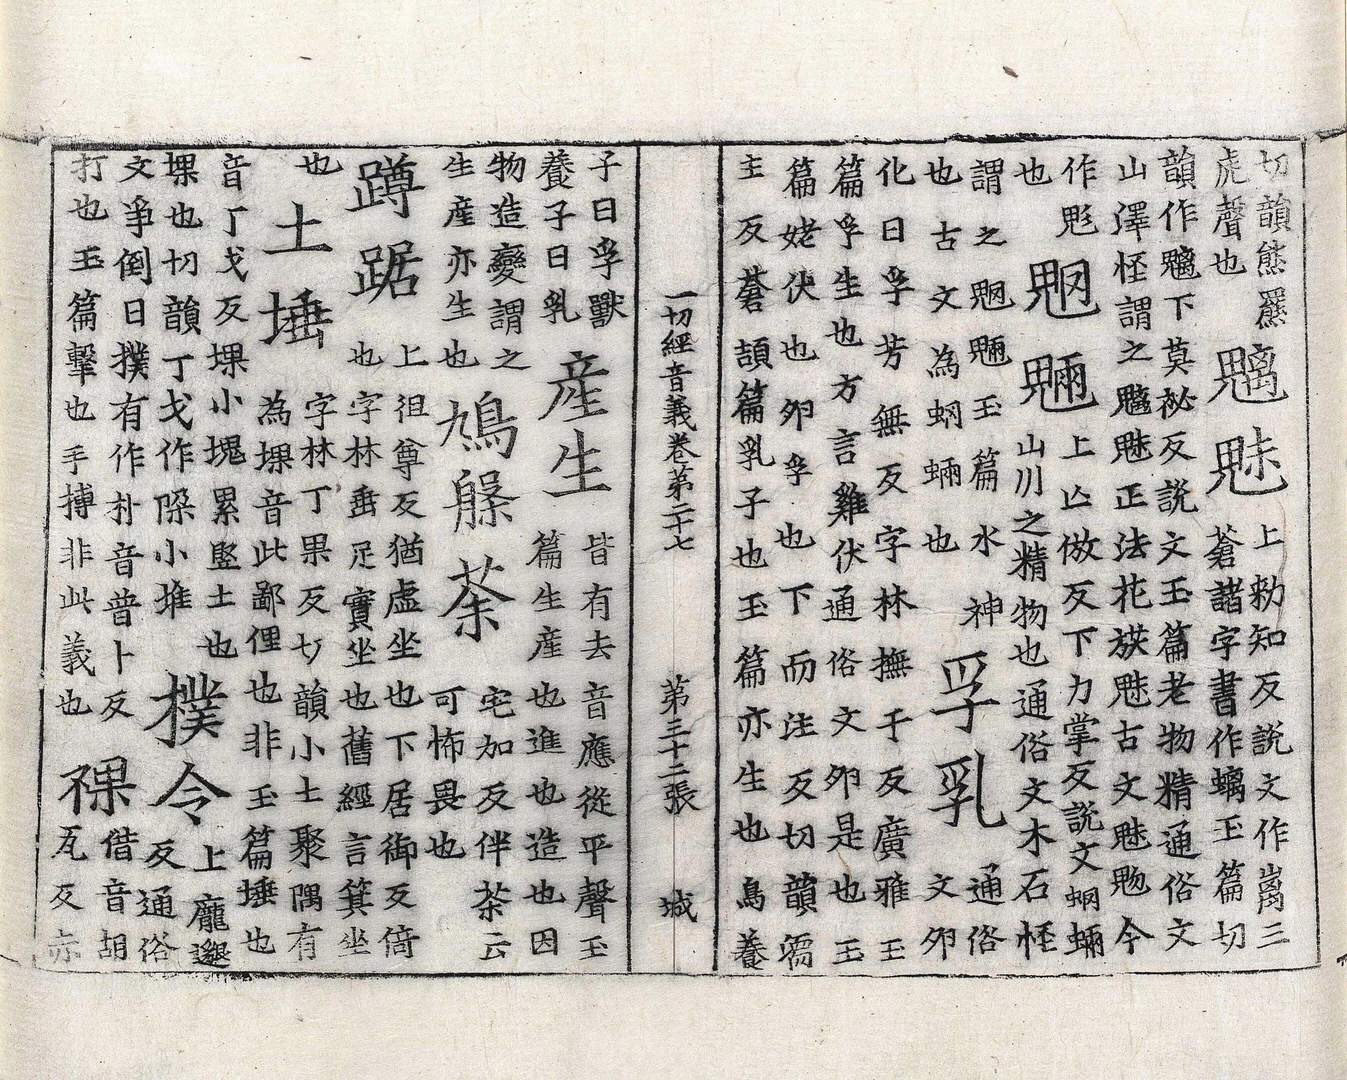 切韻熊羆
虎聲也
魑魅
上勑知反說文作离三
蒼諸字書作螭玉篇切
韻作魑下莫祕反說文玉篇老物精通俗文
山澤怪謂之魑魅正法花族魅古文魅鬽今
作鬽
也
魍魎
上亡倣反下力掌反説文蝄蜽
山川之精物也通俗文木石怪
謂之魍魎玉篇水神
也古文為蝄蜽也
孚乳
通俗
文卵
化曰孚芳無反字林撫于反廣雅玉
篇孚生也方言雞伏通俗文卵是也玉
篇姥伏也卵孚也下而注反切韻儒
主反蒼頡篇乳子也玉篇亦生也鳥養
一切經音義卷第二十七 第三十二張 城
子曰孚獸
養子曰乳
產生
皆有去音應從平聲玉
篇生產也進也造也因
物造變謂之
生產亦生也
鳩槃荼
宅加反伴荼云
可怖畏也
蹲踞
上徂尊反猶虛坐也下居御反倚
也字林垂足實坐也舊經言箕坐
也
土埵
字林丁果反切韻小土聚隅有
為堁音此鄙俚也非玉篇埵也
音丁戈反堁小塊累堅土也
堁也切韻丁戈作小堆
撲令
上龐邈
反通俗
文爭倒曰撲有作扑音普卜反
打也玉篇擊也手搏非此義也
裸
借音胡
瓦反亦